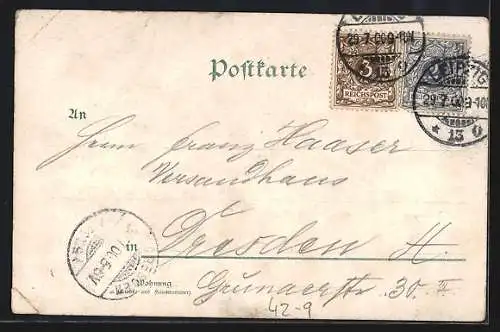 29.7.00.9-10V.
13
3
REICHSPOST
LEIPZIG
29.7.00.9-10V.
* 13 *
Postkarte
An
Herrn Franz Haaser
Versandhaus
in Dresden A.
Wohnung
Grunaerstr. 30. III
42-9